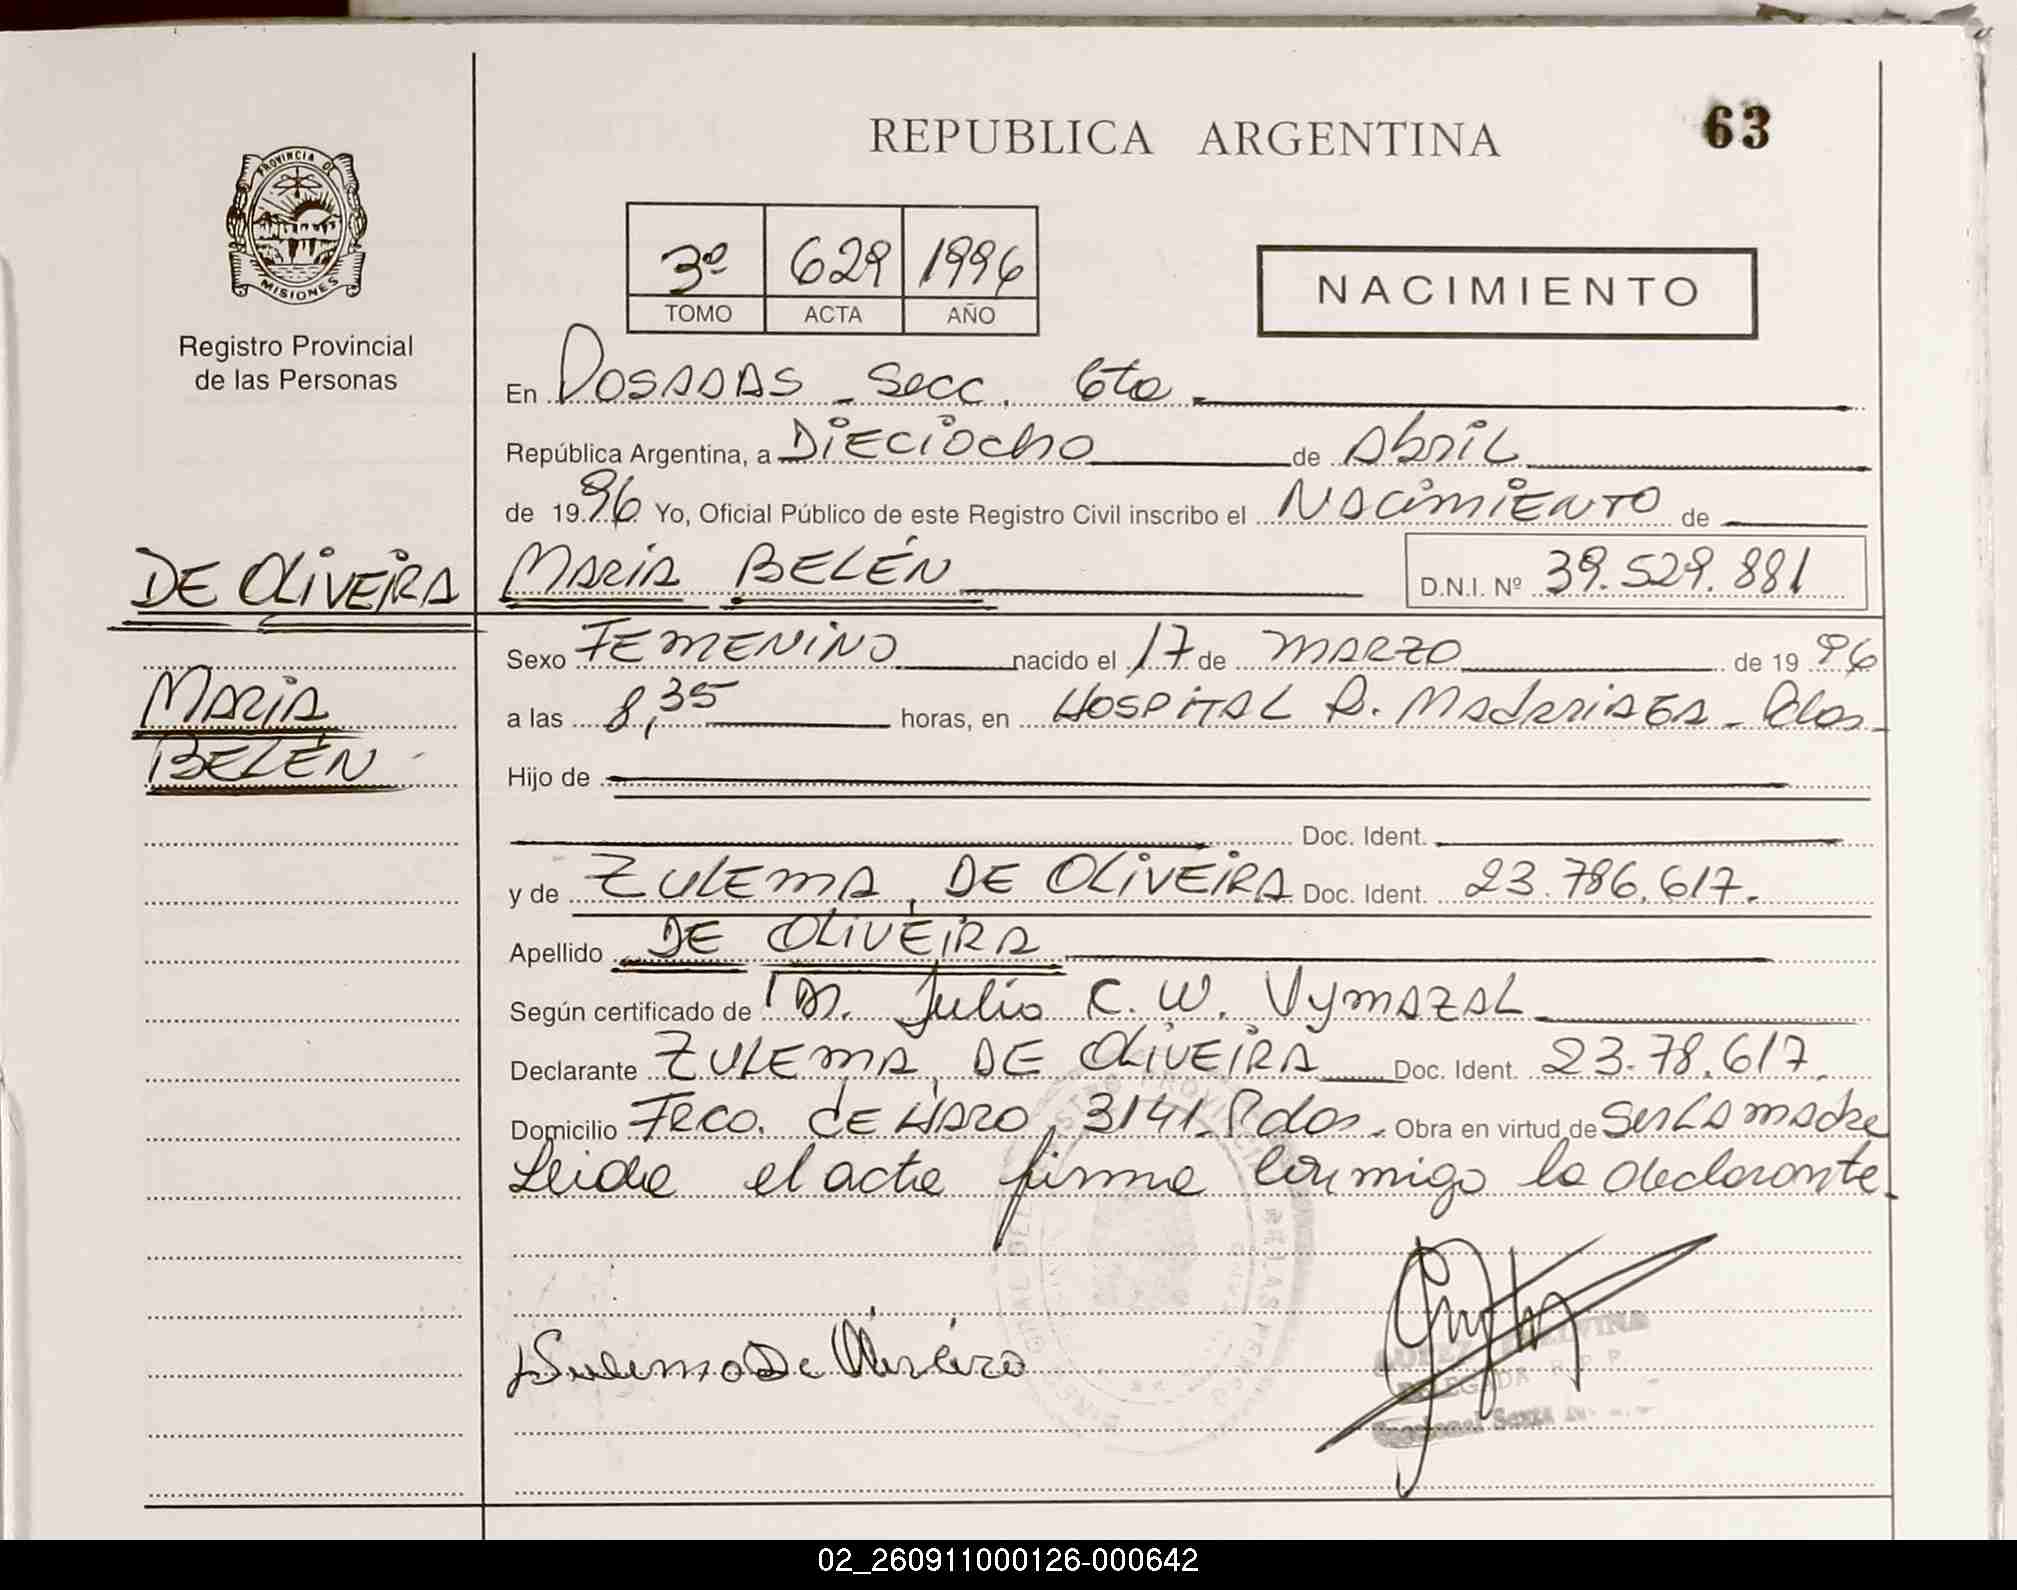 REPUBLICA ARGENTINA
63
PROVINCIA DE
MISIONES
Registro Provincial
de las Personas
3º 629 1996
TOMO ACTA AÑO
NACIMIENTO
En POSADAS - Secc. 6ta -
República Argentina, a DIECIOCHO de Abril
de 1996 Yo, Oficial Público de este Registro Civil inscribo el NACIMIENTO de
DE OLIVEIRA MARIA BELÉN D.N.I. Nº 39.529.881
Sexo FEMENINO nacido el 17 de MARZO de 1996
MARIA
a las 8,35 horas, en HOSPITAL R. MAdARIAGA - Pdas -
BELÉN
Hijo de
Doc. Ident.
y de ZULEMA, DE OLIVEIRA Doc. Ident. 23.786.617.
Apellido DE OLIVEIRA
Según certificado de Dr. Julio C. W. VymAZAL
Declarante ZULEMA, DE OLIVEIRA Doc. Ident. 23.78.617.
Domicilio FRCO. dE HARO, 3141. Pdas. Obra en virtud de Ser LA madre
Leida el acta firma conmigo la declarante.
Zulema De Oliveira
DELEGADA R. P. P.
Seccional Sexta
02_260911000126-000642